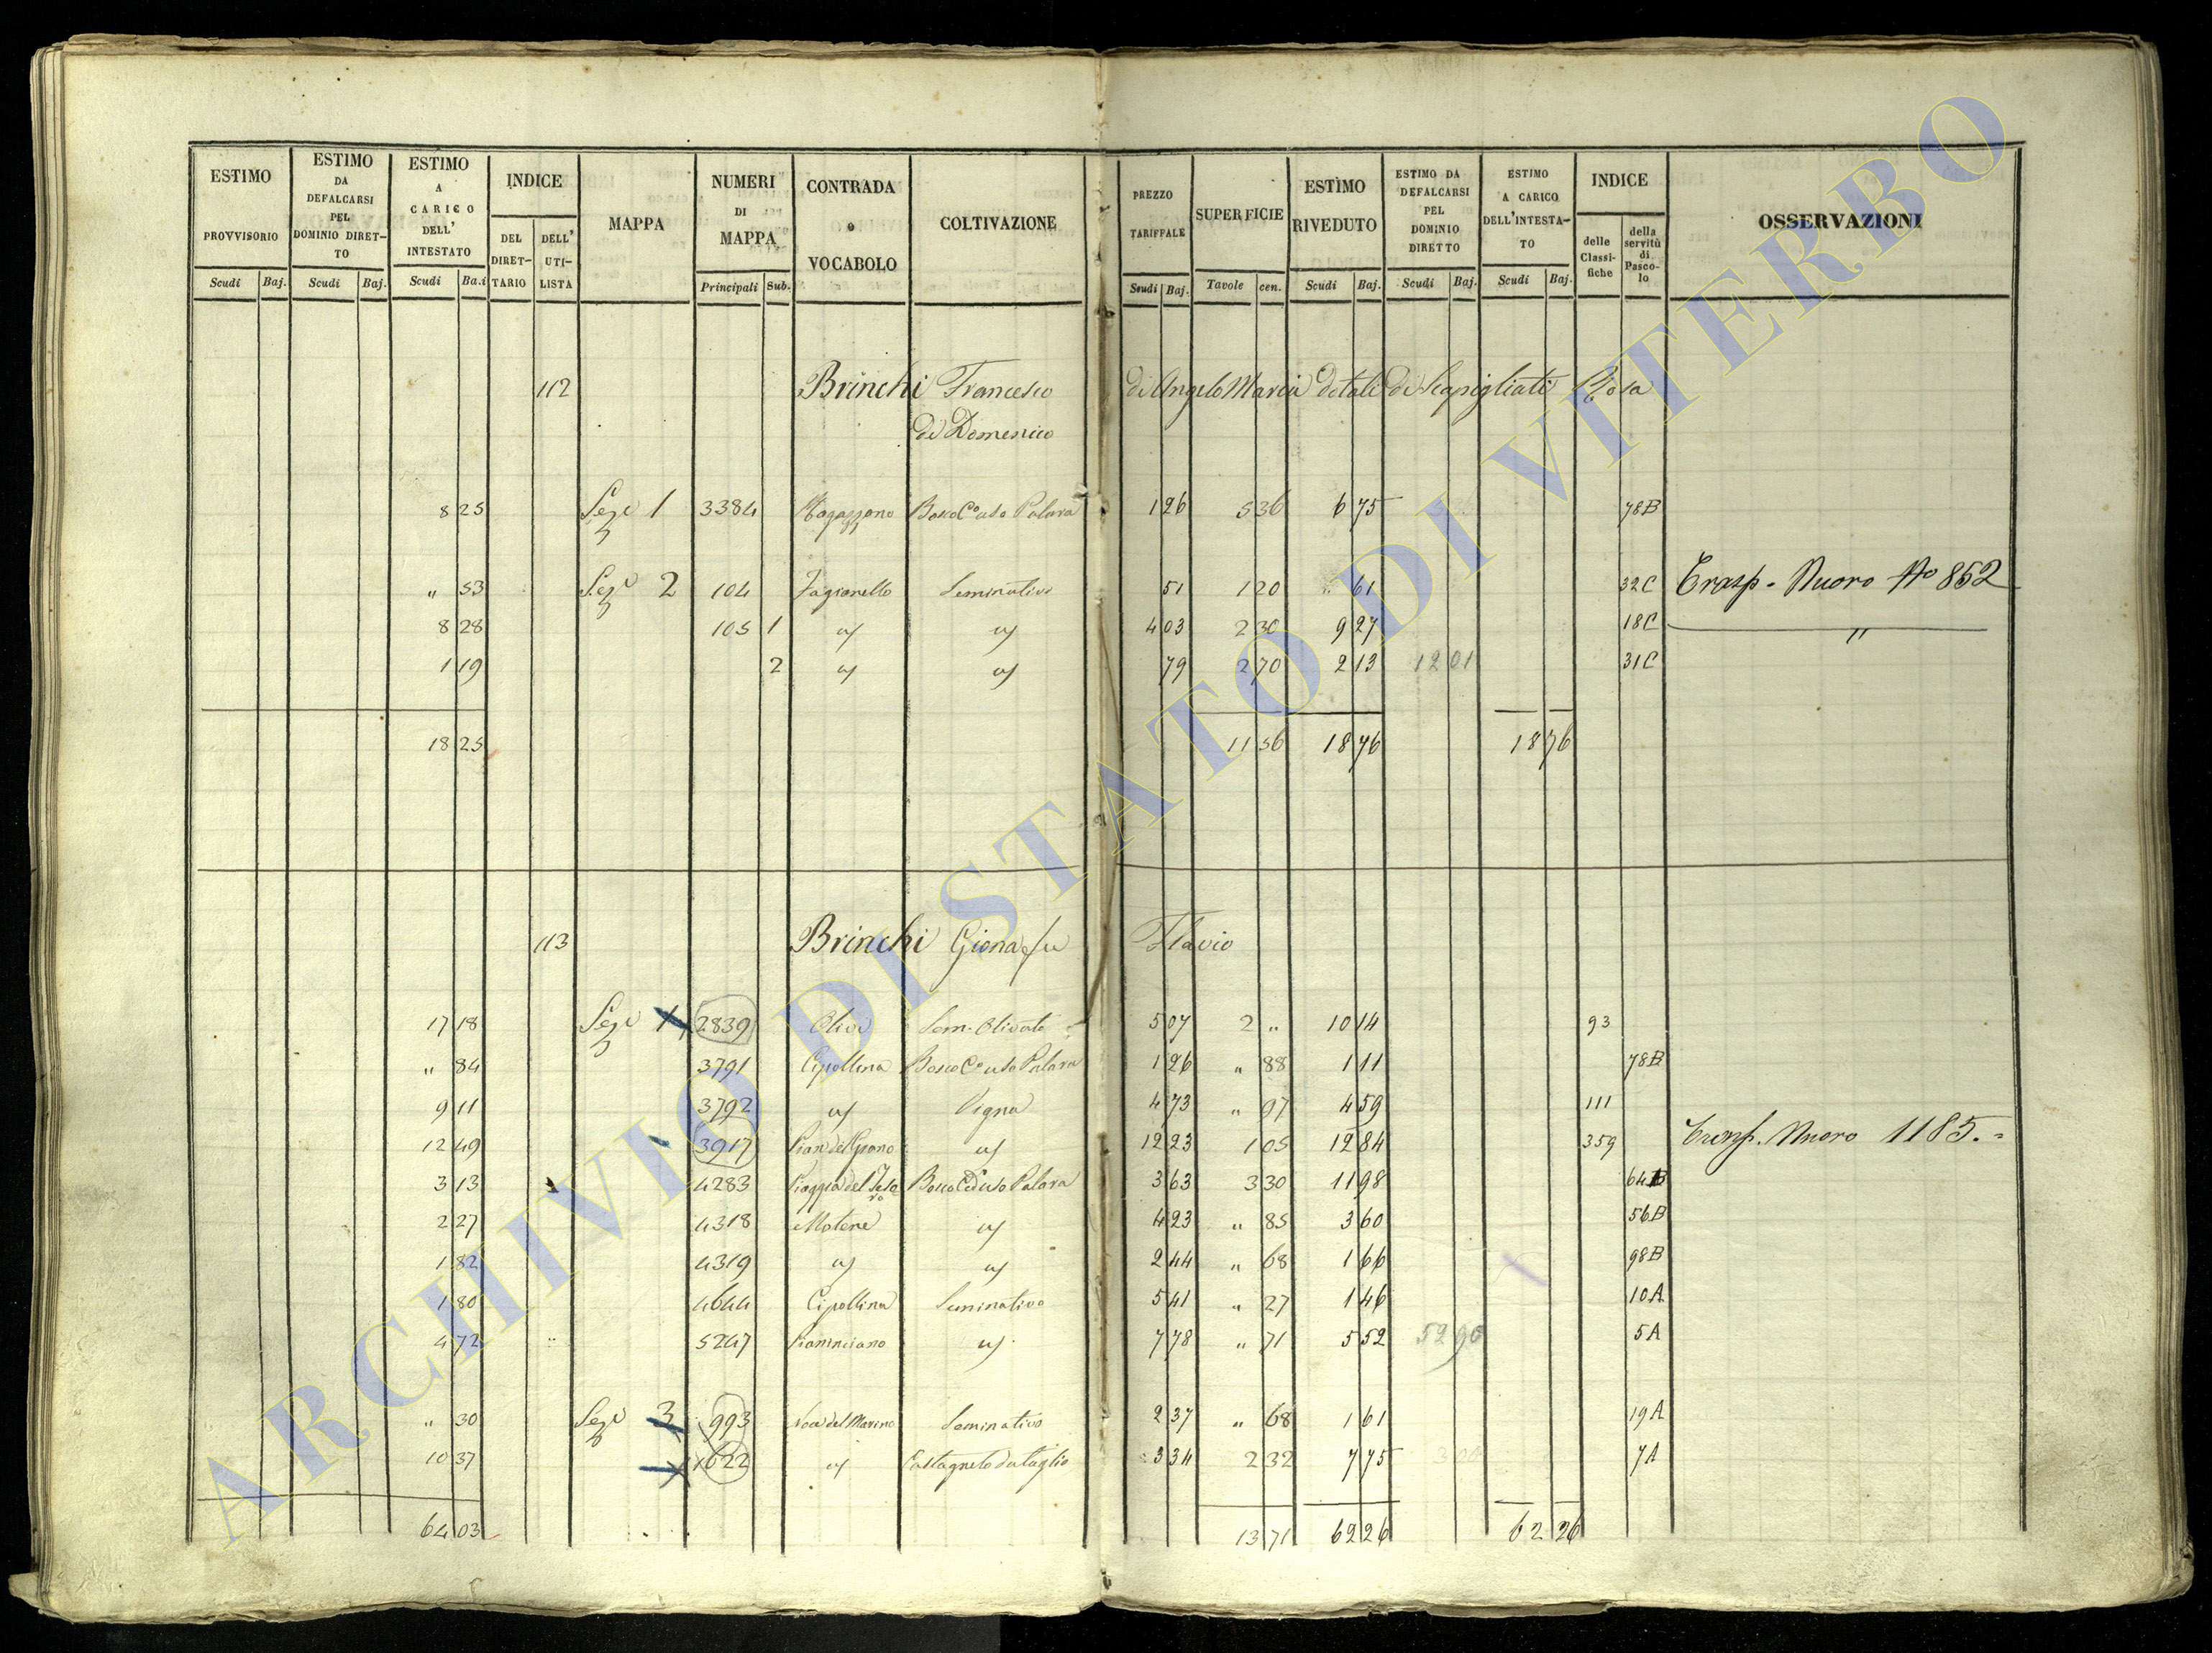 ESTIMO PROVVISORIO Scudi Baj. | ESTIMO DA DEFALCARSI PEL DOMINIO DIRETTO Scudi Baj. | ESTIMO A CARICO DELL' INTESTATO Scudi Ba.i | INDICE DEL DIRETTARIO DELL' UTILISTA | MAPPA | NUMERI DI MAPPA Principali Sub. | CONTRADA o VOCABOLO | COLTIVAZIONE | PREZZO TARIFFALE Scudi Baj. | SUPERFICIE Tavole cen. | ESTIMO RIVEDUTO Scudi Baj. | ESTIMO DA DEFALCARSI PEL DOMINIO DIRETTO Scudi Baj. | ESTIMO A CARICO DELL'INTESTATO Scudi Baj. | INDICE delle Classifiche della servitù di Pascolo | OSSERVAZIONI
112 Brinchi Francesco di Angelo Maria dotali di Scapigliati Rosa
di Domenico
8 25 Sez.e 1 3384 Bosco C.o uso Palara 1 26 5 36 6 75 78B
" 53 Sez.e 2 104 Fagianello Seminativo 51 1 20 " 61 32C Trasp. Nuovo N.o 852
8 28 105 1 " " 4 03 2 30 9 27 18C "
1 19 2 " " 79 2 70 2 13 12 01 31C
18 25 11 56 18 76 18 76
113 Brinchi Giona fu Flavio
17 18 Sez.e 1 2839 Olivi Sem. Olivato 5 07 2 " 10 14 93
" 84 3791 Cipollina Bosco C.o uso Palara 1 26 " 88 1 11 78B
9 11 3792 " Vigna 4 73 " 97 4 59 111
12 49 3917 Pian del Grano " 12 23 1 05 12 84 359 Trasp. Nuovo 1185.=
3 13 4283 Piaggia del Bosco Ceduo Palara 3 63 3 30 11 98 64B
2 27 4318 Motene " 4 23 " 85 3 60 56B
1 82 4319 " " 2 44 " 68 1 66 98B
1 80 4644 Cipollina Seminativo 5 41 " 27 1 46 10A
4 72 5247 " 7 78 " 71 5 52 52 90 5A
" 30 Sez.e 3 993 Noce del Marino Seminativo 2 37 " 68 1 61 19A
10 37 1622 " Castagneto da taglio 3 34 2 32 7 75 7A
64 03 13 71 62 26 62 26
ARCHIVIO DI STATO DI VITERBO